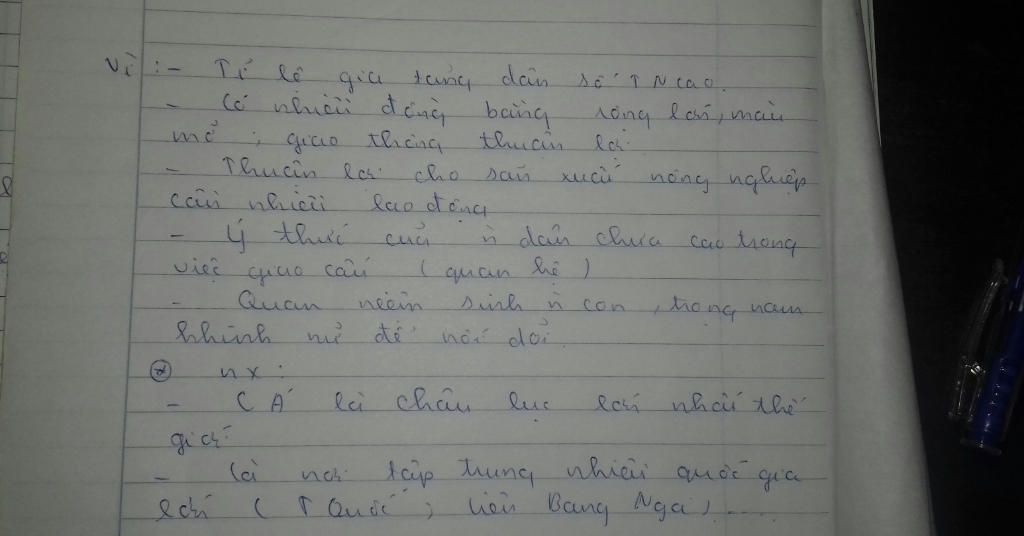 Vì : - Tỉ lệ gia tăng dân số TN cao.
- Có nhiều đồng bằng rộng lớn, màu
mỡ ; giao thông thuận lợi.
- Thuận lợi cho sản xuất nông nghiệp
cần nhiều lao động
- Ý thức của n dân chưa cao trong
việc giao cấu ( quan hệ )
- Quan niệm sinh n con , trọng nam
khinh nữ để nối dõi.
* nx :
- C Á là châu lục lớn nhất thế
giới
- Là nơi tập trung nhiều quốc gia
lớn ( T Quốc ; Liên Bang Nga ) ....